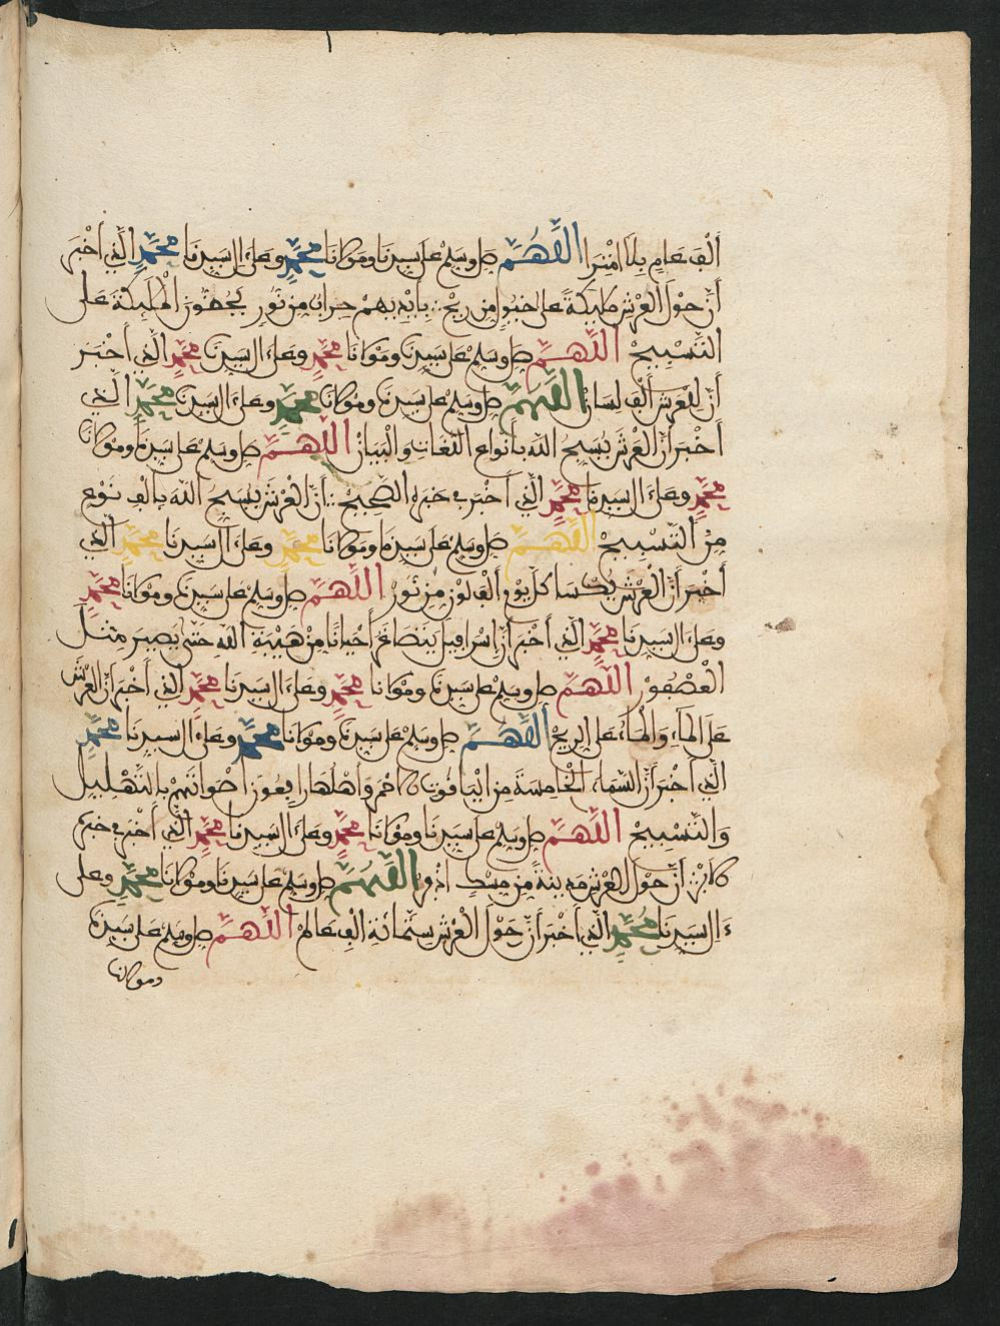 ألف عام بلا امترا اللهم صل وسلم على سيدنا ومولانا محمد وعلى ءال سيدنا محمد الذي أخبر
أن حول العرش ملىكة على خيول من ريح بايديهم حراب من نور يحضون الملىكة على
التسبيح اللهم صل وسلم على سيدنا ومولانا محمد وعلى ءال سيدنا محمد الذي أخبر
أن للعرش ألف لسان اللهم صل وسلم على سيدنا ومولانا محمد وعلى ءال سيدنا محمد الذي
أخبر أن العرش يسبح الله بأنواع اللغات والبيان اللهم صل وسلم على سيدنا ومولانا
محمد وعلى ءال سيدنا محمد الذي أخبر في خبره الصحيح أن العرش يسبح الله بألف نوع
من التسبيح اللهم صل وسلم على سيدنا ومولانا محمد وعلى ءال سيدنا محمد الذي
أخبر أن العرش يكسا كل يوم ألف لون من نور اللهم صل وسلم على سيدنا ومولانا محمد
وعلى ءال سيدنا محمد الذي أخبر أن إسرافيل يتضاغر أحيانا من هيبة الله حتى يصير مثل
العصفور اللهم صل وسلم على سيدنا ومولانا محمد وعلى ءال سيدنا محمد الذي أخبر أن العرش
على الماء والماء على الريح اللهم صل وسلم على سيدنا ومولانا محمد وعلى ءال سيدنا محمد
الذي أخبر أن السماء الخامسة من الياقوت الاحمر وأهلها رافعون أصواتهم بالتهليل
والتسبيح اللهم صل وسلم على سيدنا ومولانا محمد وعلى ءال سيدنا محمد الذي أخبر في خبره
أن حول العرش مدينة من مسك اذفر اللهم صل وسلم على سيدنا ومولانا محمد وعلى
ءال سيدنا محمد الذي أخبر أن حول العرش ستمائة ألف عالم اللهم صل وسلم على سيدنا
ومولانا